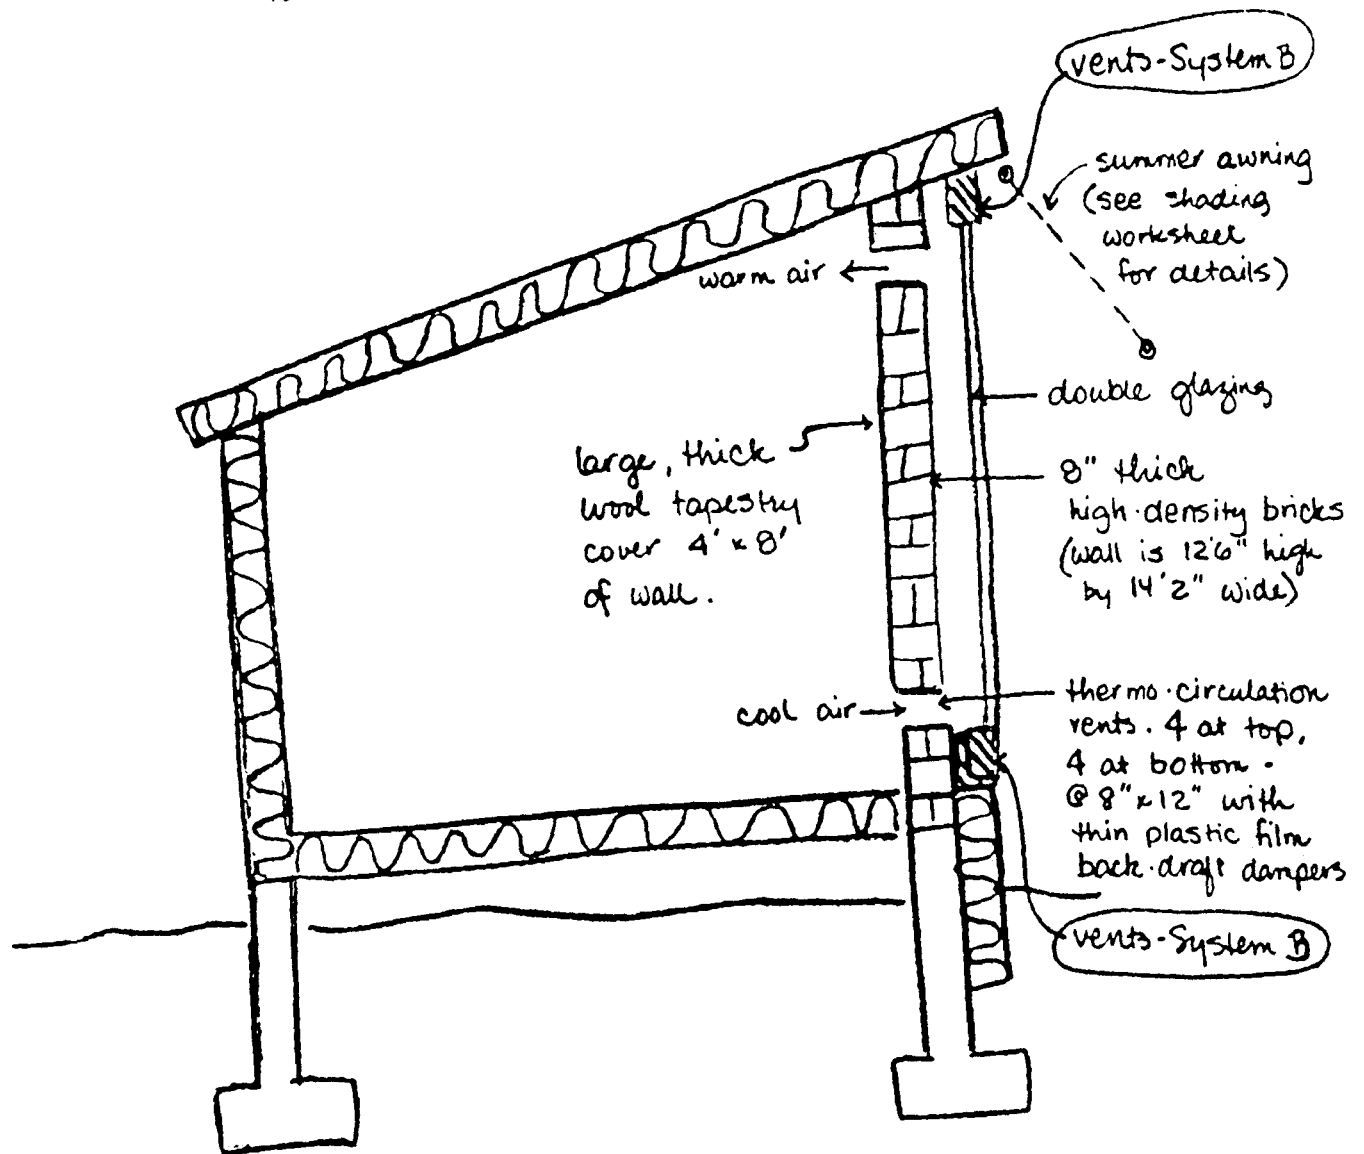 vents-System B
summer awning
(see shading
worksheet
for details)
warm air
double glazing
large, thick
wool tapestry
cover 4' x 8'
of wall.
8" thick
high-density bricks
(wall is 12'6" high
by 14'2" wide)
cool air
thermo-circulation
vents. 4 at top,
4 at bottom -
@ 8" x 12" with
thin plastic film
back-draft dampers
vents-System B